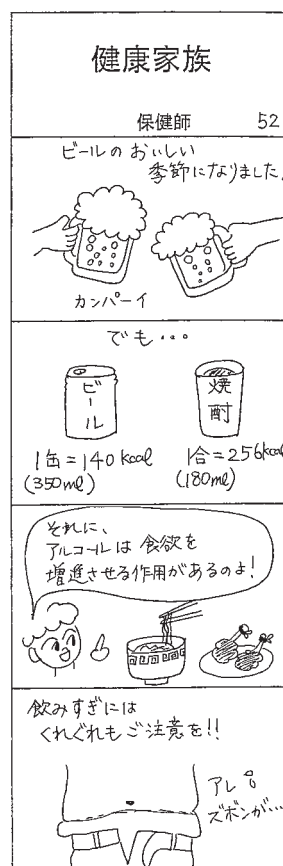 健康家族
保健師 52
ビールのおいしい
季節になりました。
カンパーイ
でも…
ビール
焼酎
1缶=140kcal
(350ml)
1合=256kcal
(180ml)
それに、
アルコールは食欲を
増進させる作用があるのよ!
飲みすぎには
くれぐれもご注意を!!
アレ
ズボンが…